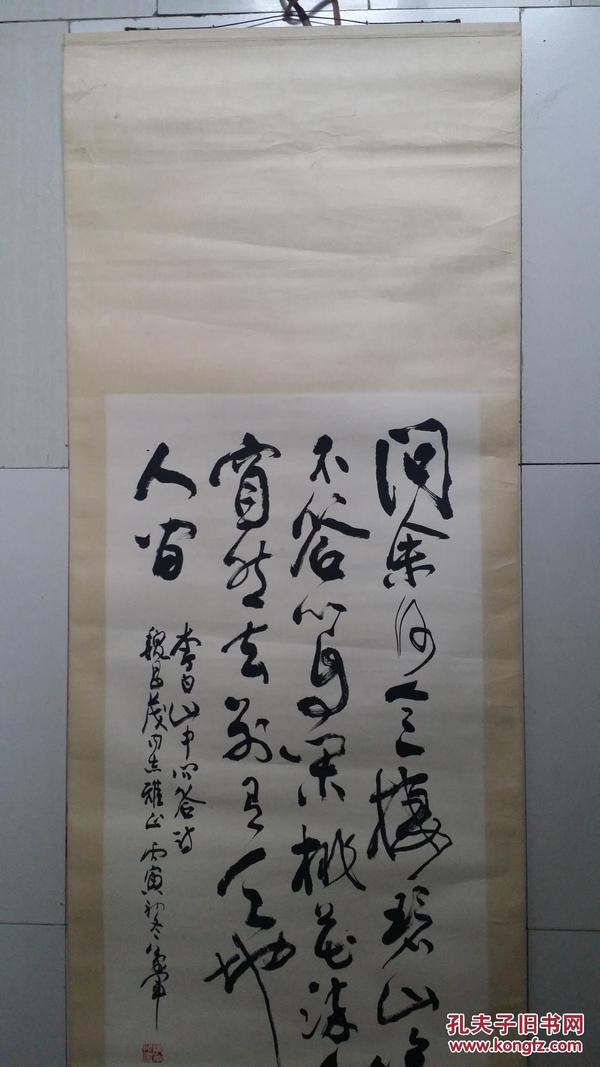 问余何意棲碧山
不答心自闲桃花流
窅然去别有天地
人间
李白山中问答诗
魏昌茂同志雅正 丙寅初冬
孔夫子旧书网
www.kongfz.com